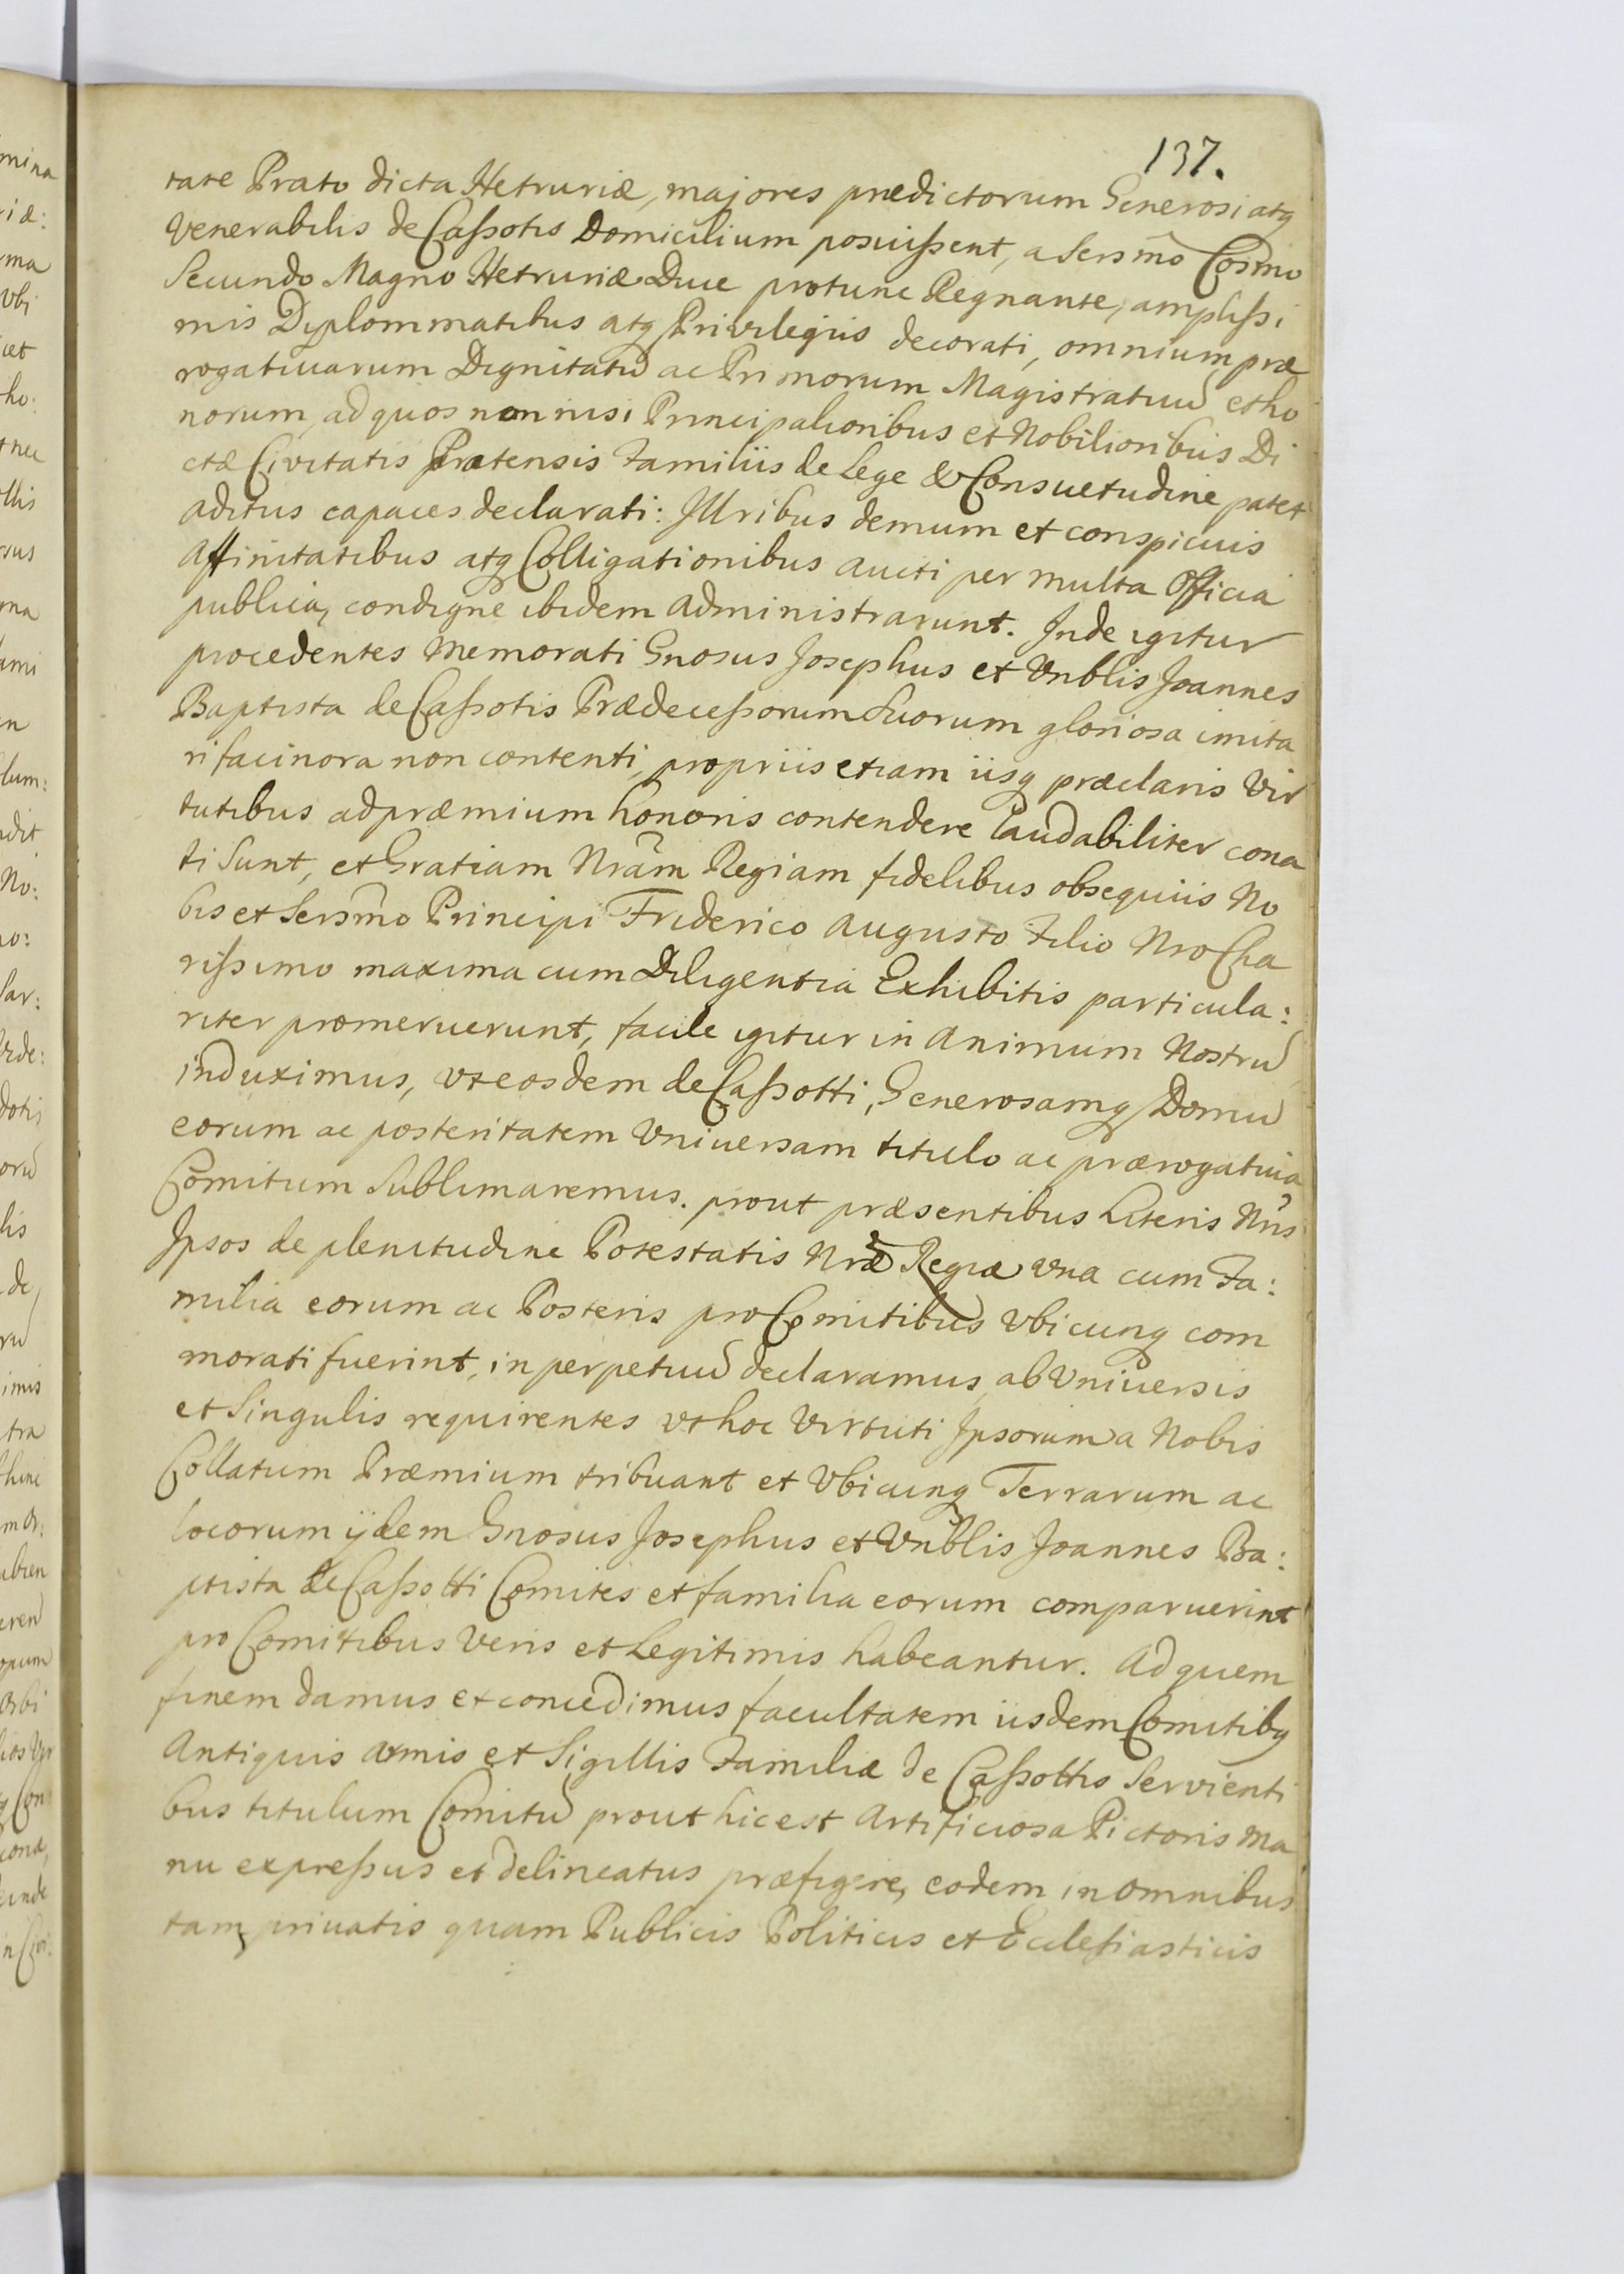 137.
tate Prato dicta Hetruriæ, majores prædictorum Generosi atq
Venerabilis de Caßotis Domicilium posuißent, a Sersmo Cosmo
Secundo Magno Hetruriæ Duce protunc Regnante, ampliſsi
mis Diplommatibus atq Privilegiis decorati, omnium præ
rogativarum Dignitatū ac Primorum Magistratuū et ho
norum, ad quos non nisi Principalioribus et Nobilioribus Di
ctæ Civitatis Pratensis Familiis de Lege & Consuetudine patet
aditus capaces declarati: Jllribus demum et conspicuis
affinitatibus atq Colligationibus aucti per multa Officia
publica, condigne ibidem administrarunt. Jnde igitur
procedentes memorati Gnosus Josephus et Vnblis Joannes
Baptista de Caßotis Prædeceßorum Suorum gloriosa imita
ri facinora non contenti, propriis etiam iisq præclaris Vir
tutibus ad præmium honoris contendere laudabiliter cona
ti Sunt, et Gratiam Nrām Regiam fidelibus obsequiis No
bis et Sersmo Principi Friderico Augusto Filio Nro Cha
rißimo maxima cum Diligentia Exhibitis particula:
riter promeruerunt, facile igitur in Animum Nostrū
induximus, vt eosdem de Caßotti, Generosamq Domū
eorum ac posteritatem Vniuersam titulo ac prærogatiua
Comitum Sublimaremus. prout præsentibus Literis Nris
Jpsos de plenitudine Potestatis Nræ Regiæ vna cum Fa:
milia eorum ac Posteris pro Comitibus Vbicunq com
morati fuerint, in perpetuū declaramus, ab Vniuersis
et Singulis requirentes vt hoc Virtuti Jpsorum a Nobis
Collatum Præmium tribuant et Vbicunq Terrarum ac
locorum ijdem Gnosus Josephus et Vnblis Joannes Ba:
ptista de Caßotti Comites et familia eorum comparuerint
pro Comitibus Veris et Legitimis habeantur. Ad quem
finem damus et concedimus facultatem iisdem Comitibq
Antiquis armis et Sigillis Familiæ de Caßottis Servienti
bus titulum Comitū prout hic est Artificiosa Pictoris ma
nu expreßus et delineatus præfigere, eodem in omnibus
tam priuatis quam Publicis Politicis et Eccleſiasticis